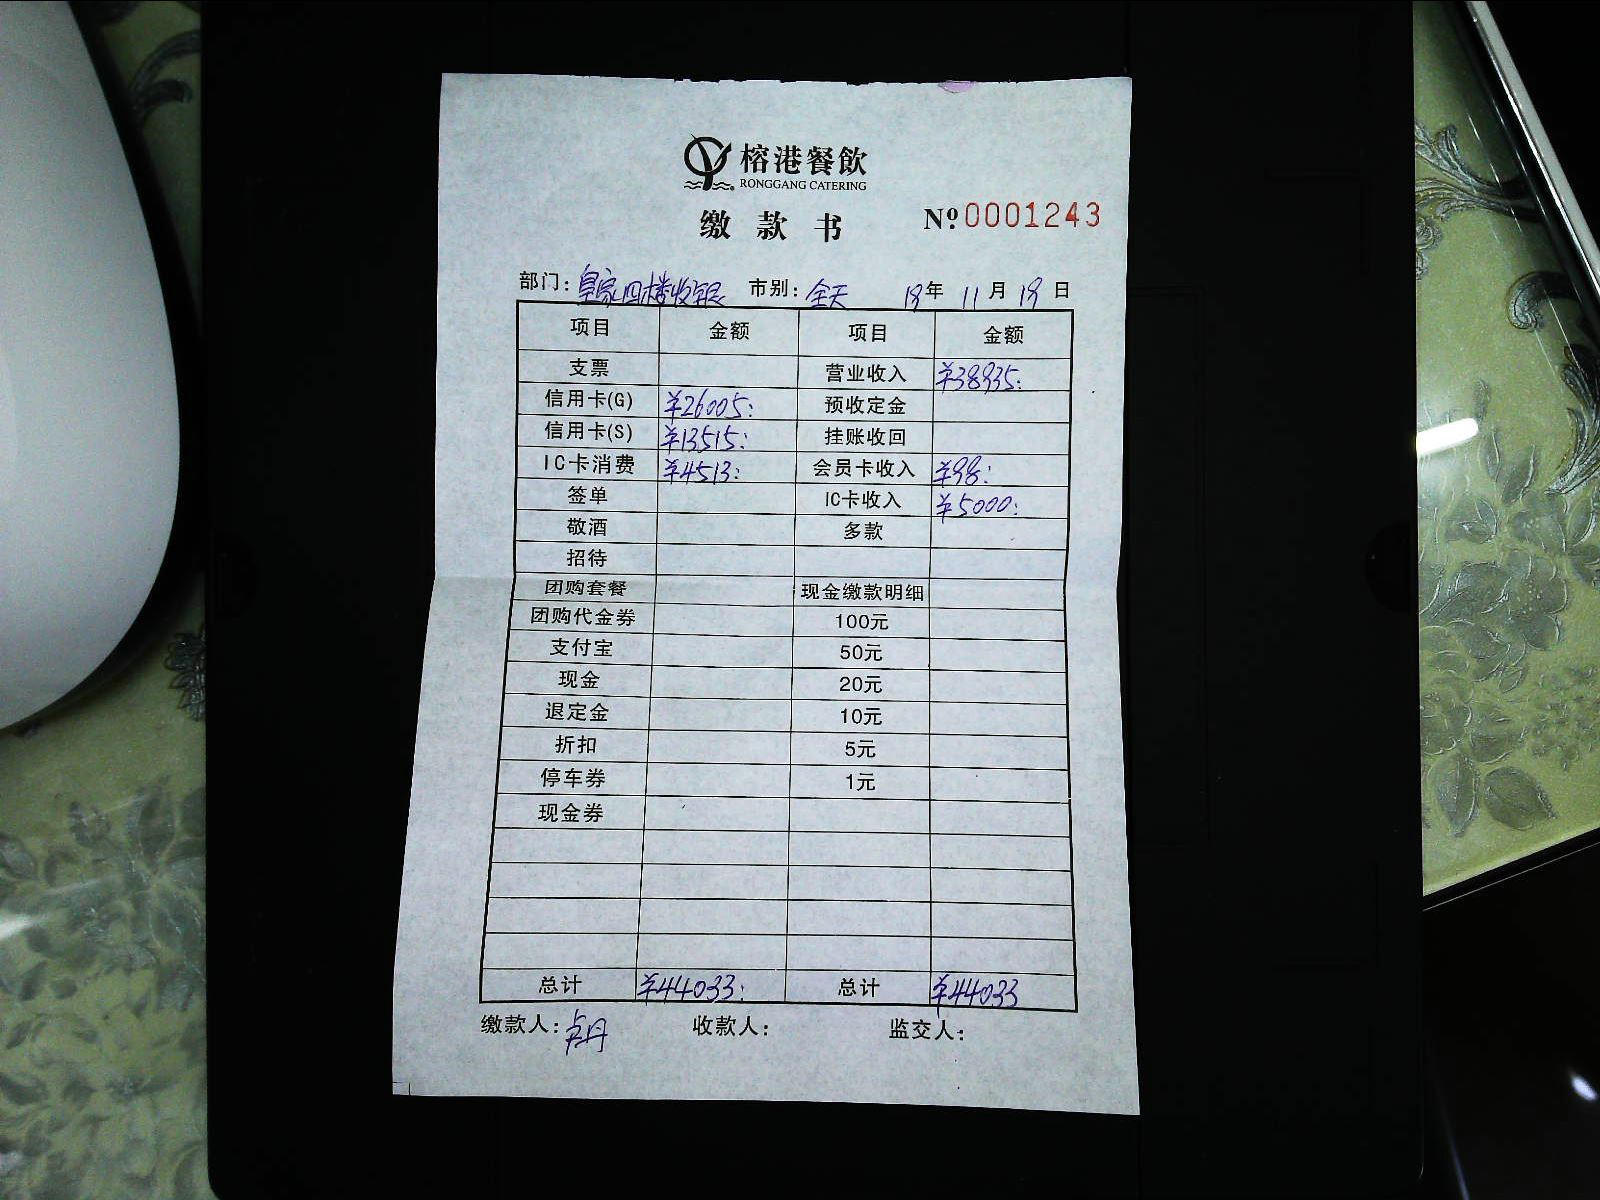 榕港餐飲
RONGGANG CATERING
缴款书 Nº:0001243
部门:皇家四楼收银 市别:全天 19年 11月 19日
项目 金额 项目 金额
支票 营业收入 ¥38935:
信用卡(G) ¥26005: 预收定金
信用卡(S) ¥13515: 挂账收回
IC卡消费 ¥4513: 会员卡收入 ¥98:
签单 IC卡收入 ¥5000:
敬酒 多款
招待
团购套餐 现金缴款明细
团购代金券 100元
支付宝 50元
现金 20元
退定金 10元
折扣 5元
停车券 1元
现金券
总计 ¥44033: 总计 ¥44033
缴款人:卢丹 收款人: 监交人: